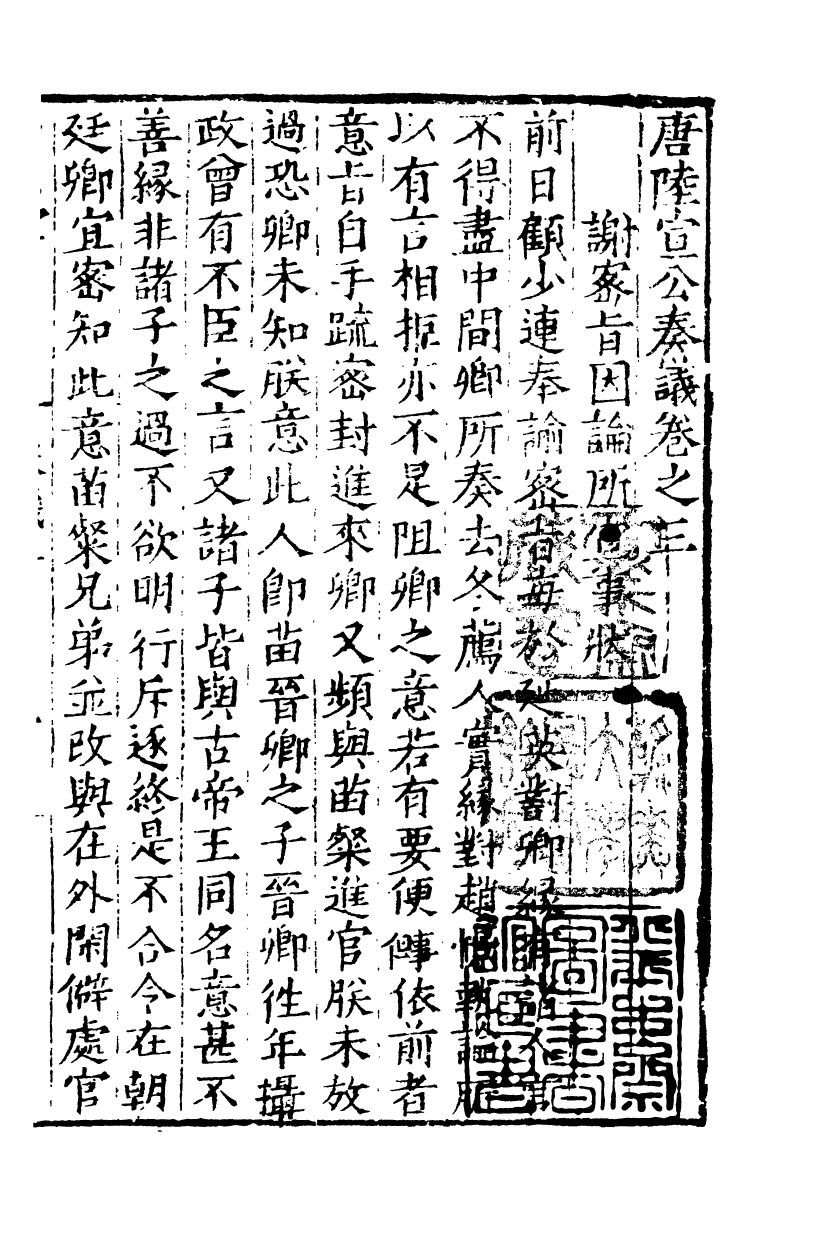 唐陸宣公奏議卷之三
謝密旨因論所宣事狀
前日顧少連奉諭密旨每於延英對卿緣有諸人
不得盡中間卿所奏去冬薦人實緣對趙憬執論所
以有言相拒亦不是阻卿之意若有要便㑰依前者
意旨自手疏密封進來卿又頻與苗粲進官朕未放
過恐卿未知朕意此人卽苗晉卿之子晉卿往年攝
政曾有不臣之言又諸子皆與古帝王同名意甚不
善緣非諸子之過不欲明行斥逐終是不合令在朝
廷卿宜密知此意苗粲兄弟並改與在外閑僻處官